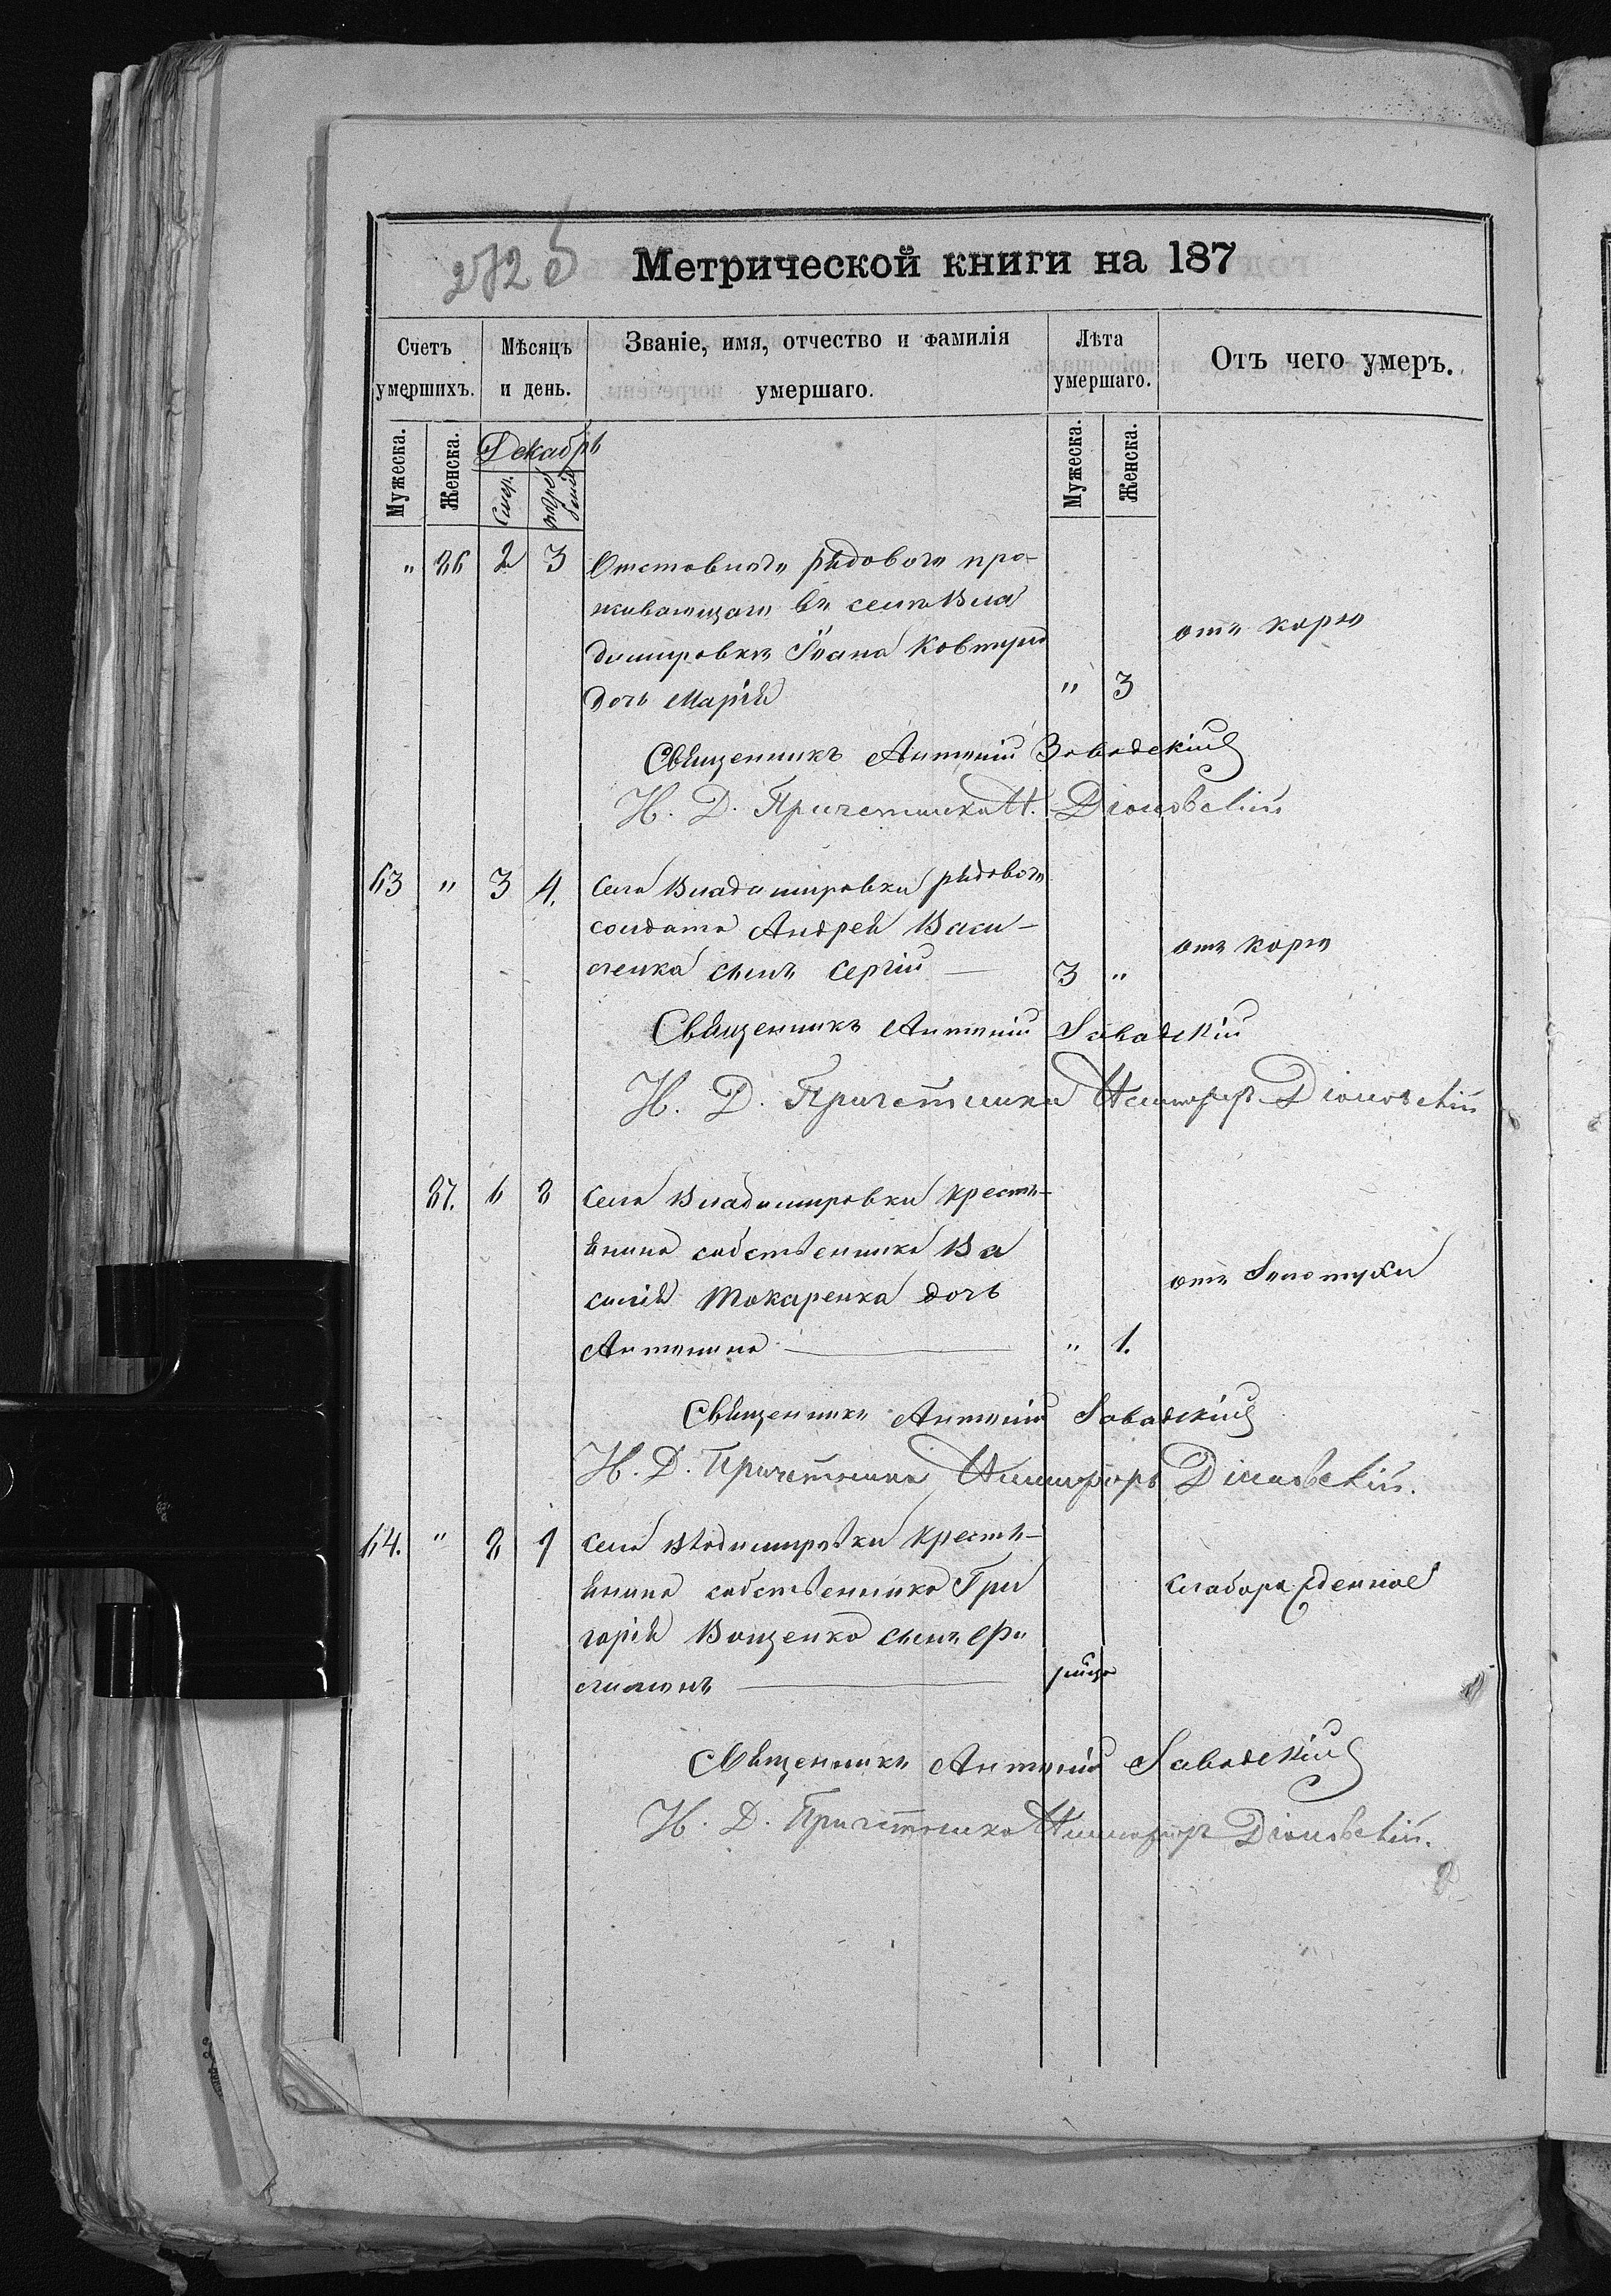 272 б
Метрической книги на 187
Счетъ умершихъ.
Мѣсяцъ и день.
Званіе, имя, отчество и фамилія умершаго.
Лѣта умершаго.
Отъ чего умеръ.
Мужеска.
Женска.
Декабрь
Смер.
погребенія
Мужеска.
Женска.
" 86 2 3 Отставнаго рядоваго про-
живающаго въ селѣ Вла
димировкѣ Іоана Ковтуна отъ кору
дочь Марія " 3
Священникъ Антоній Завадскій
И. Д. Причетника Н. Діоновскій
63 " 3 4. Села Владимировки рядоваго
солдата Андрея Васи-
ленка сынъ Сергій 3 " отъ кору
Священникъ Антоній Завадскій
И. Д. Причетника Никифоръ Діоновскій
87. 6 8 Села Владимировки крестья-
янина собственника Ва
силія Токаренка дочь отъ Золотухи
Антонина " 1.
Священникъ Антоній Завадскій
И. Д. Причетника Никифоръ Діоновскій.
64. " 8 9 Села Владимировки крестья-
янина собственника Гри
горія Ващенко сынъ Фи
лимонъ слаборожденное
Священникъ Антоній Завадскій
И. Д. Причетника Никифоръ Діоновскій.